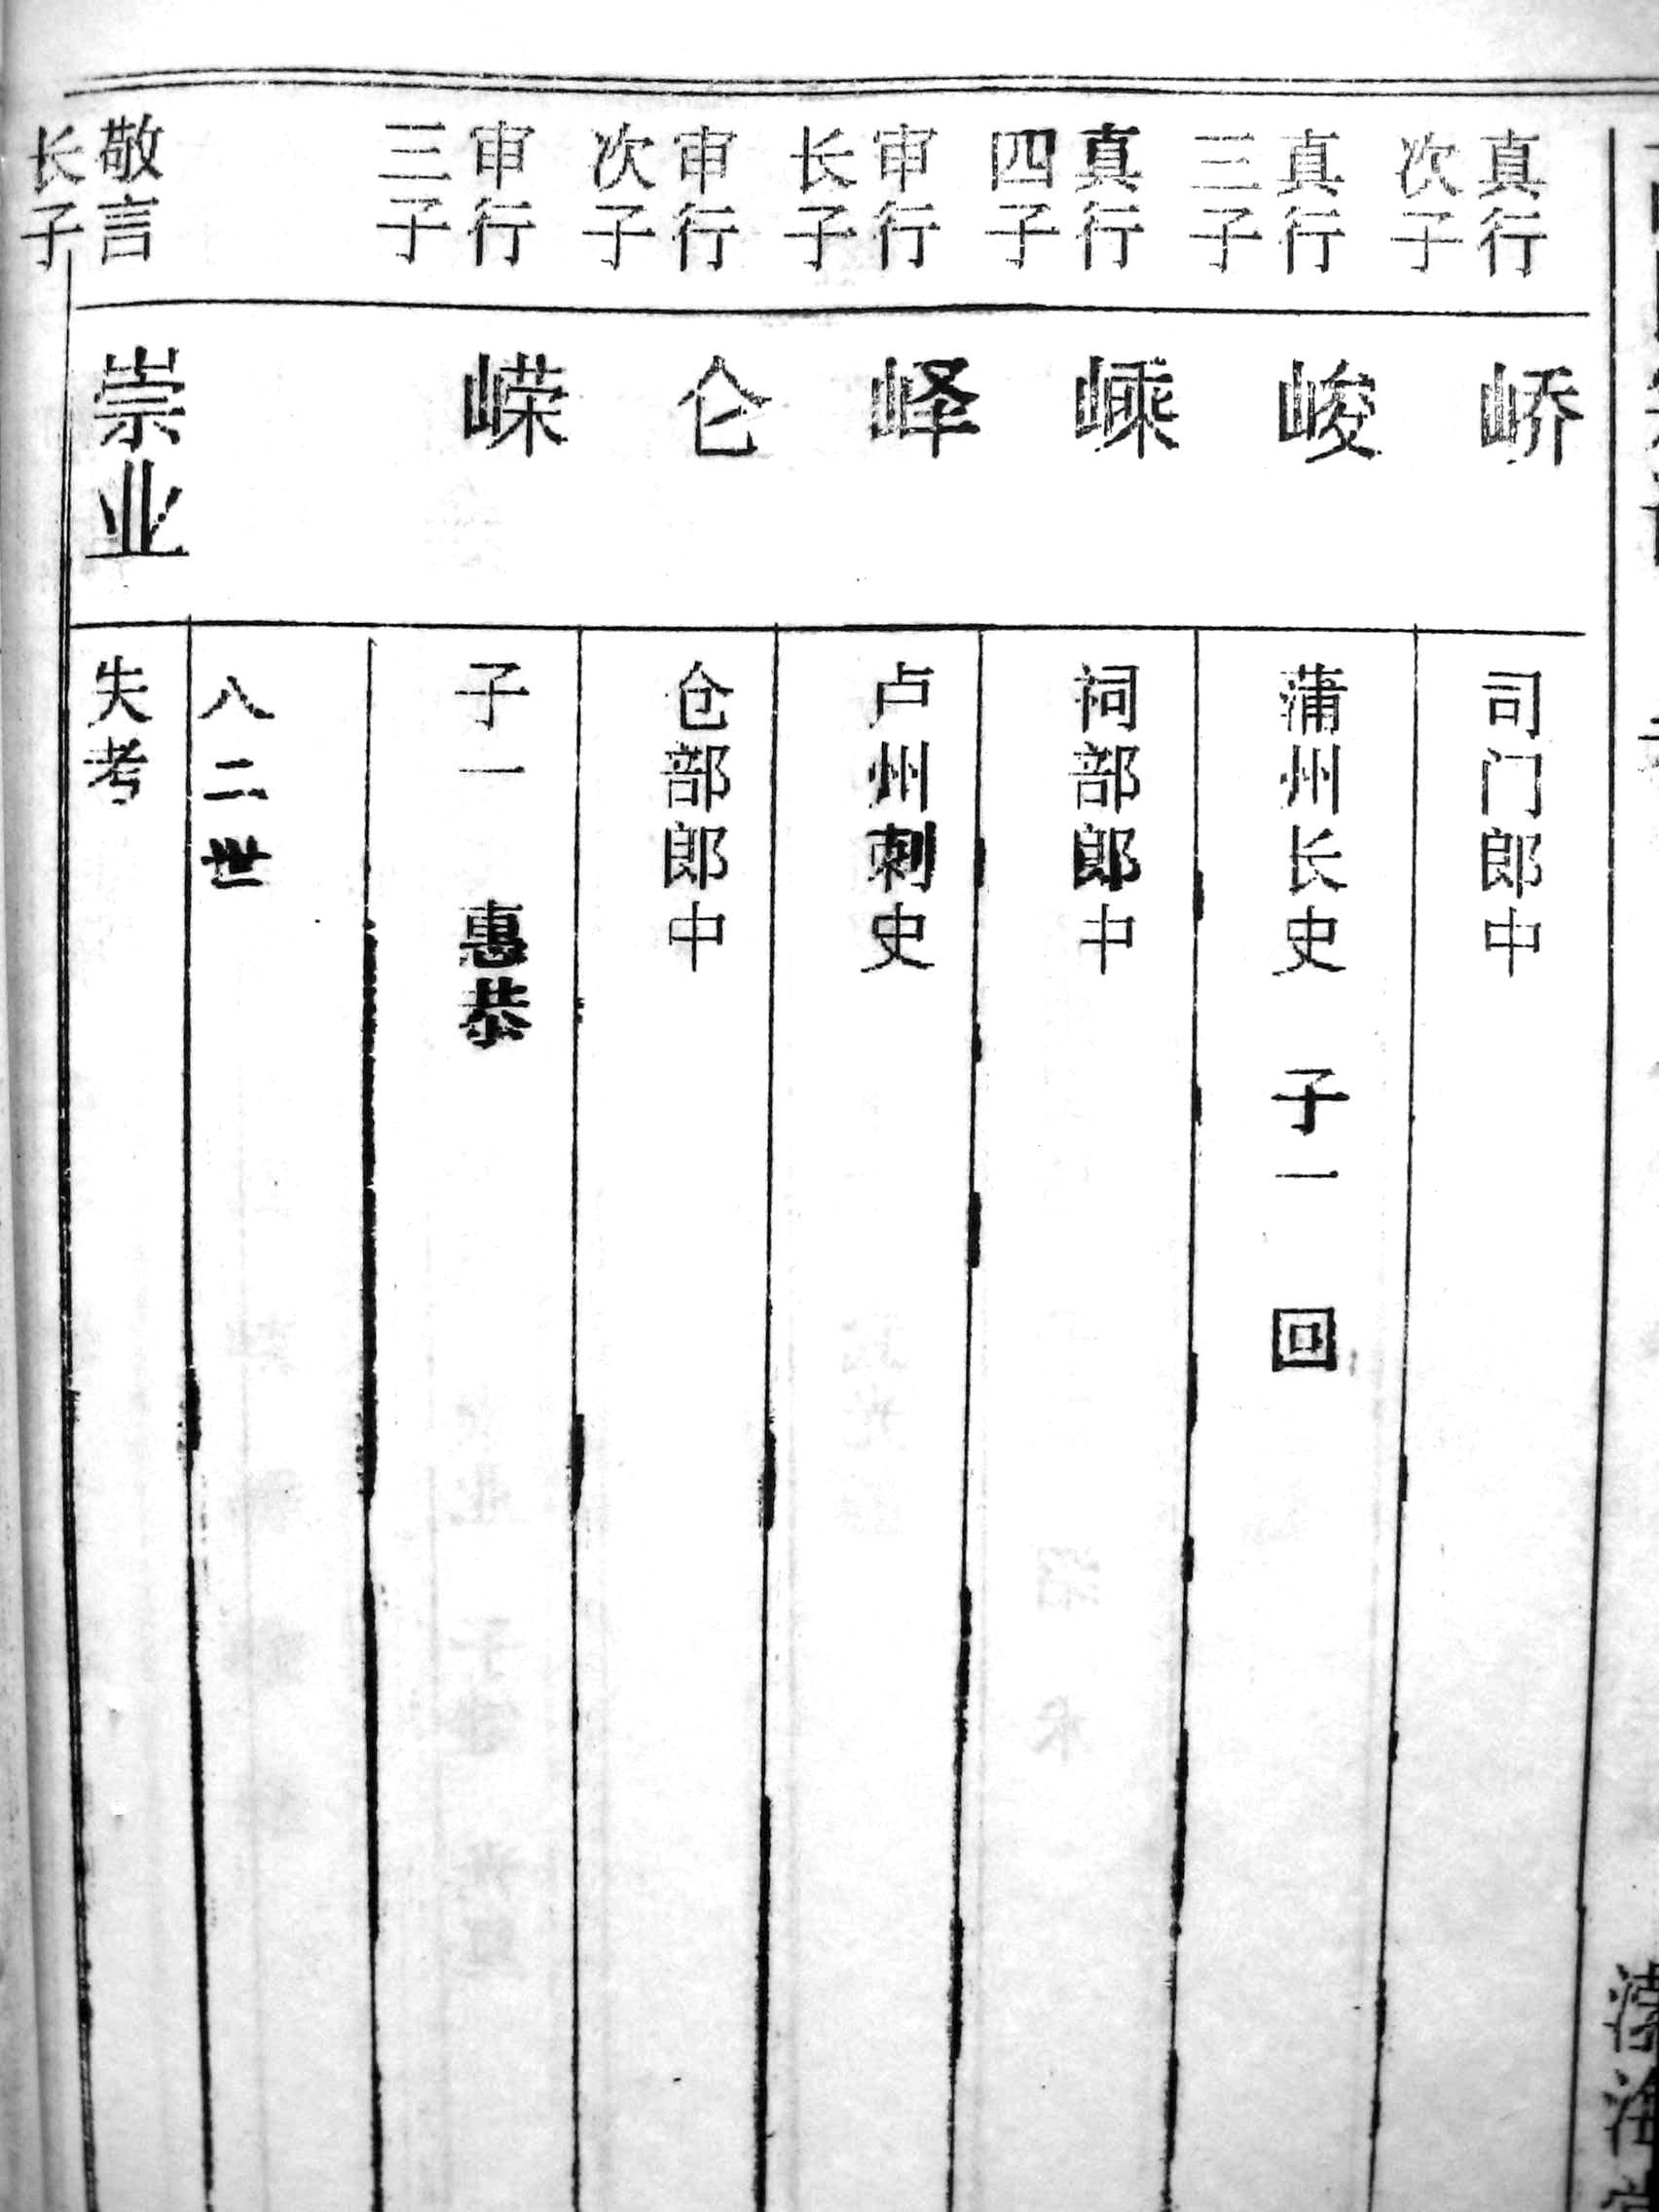 真行
次子
峤
司门郎中
真行
三子
峻
蒲州长史 子一 回
真行
四子
嵊
祠部郎中
审行
长子
峄
卢州刺史
审行
次子
仑
仓部郎中
审行
三子
嵘
子一 惠恭
八二世
敬言
长子
崇业
失考